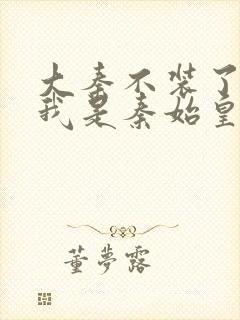 大秦不装了
我是秦始皇
董梦露